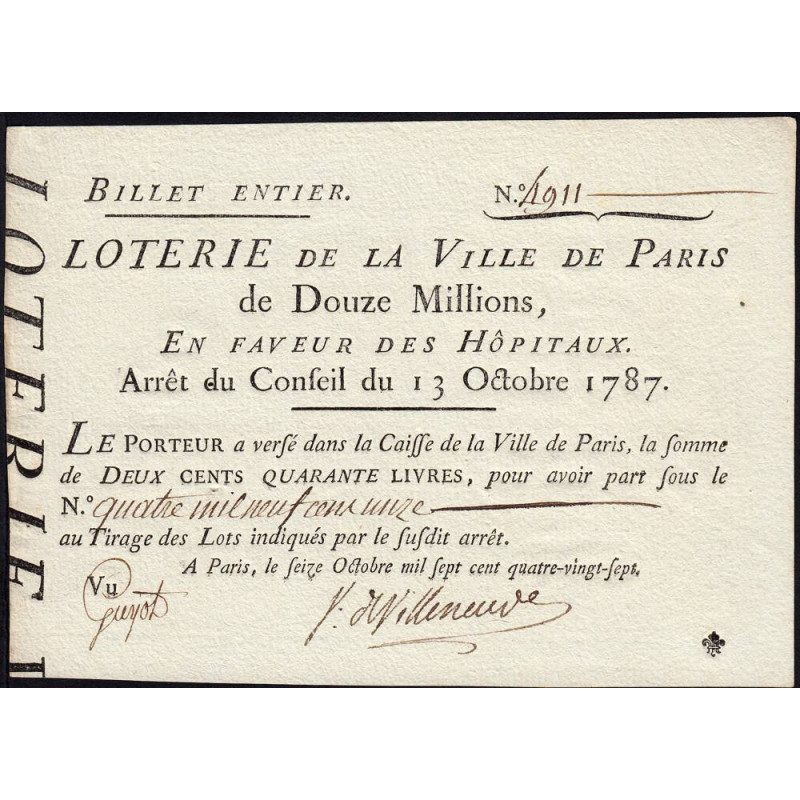 BILLET ENTIER.
N.º 4911
LOTERIE DE LA VILLE DE PARIS
de Douze Millions,
EN FAVEUR DES HÔPITAUX.
Arrêt du Conſeil du 13 Octobre 1787.
LE PORTEUR a verſé dans la Caiſſe de la Ville de Paris, la ſomme
de DEUX CENTS QUARANTE LIVRES, pour avoir part ſous le
N.º quatre mil neuf cent unze
au Tirage des Lots indiqués par le ſuſdit arrêt.
A Paris, le ſeize Octobre mil ſept cent quatre-vingt-ſept.
Vu
Guyot
deVilleneuve
LOTERIE